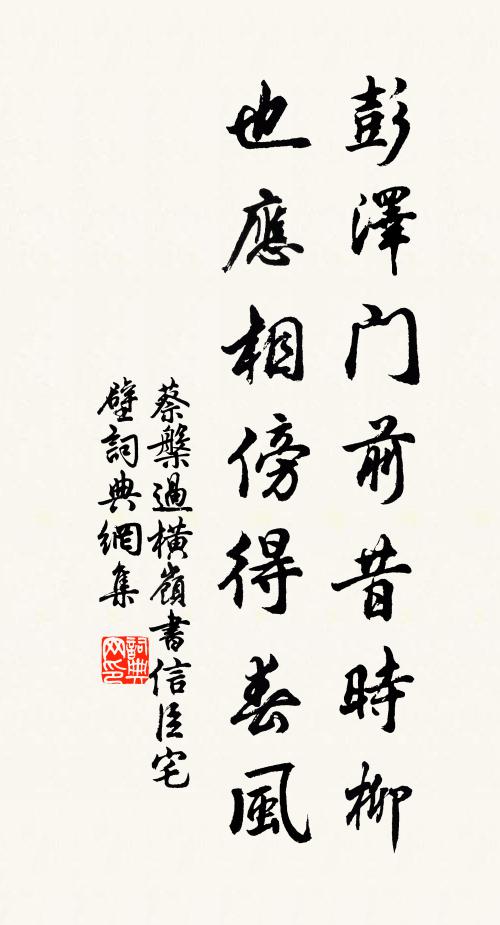 彭澤門前昔時柳
也應相傍得春風
蔡槃過橫嶺書信臣宅
壁詞典網集
詞典网印